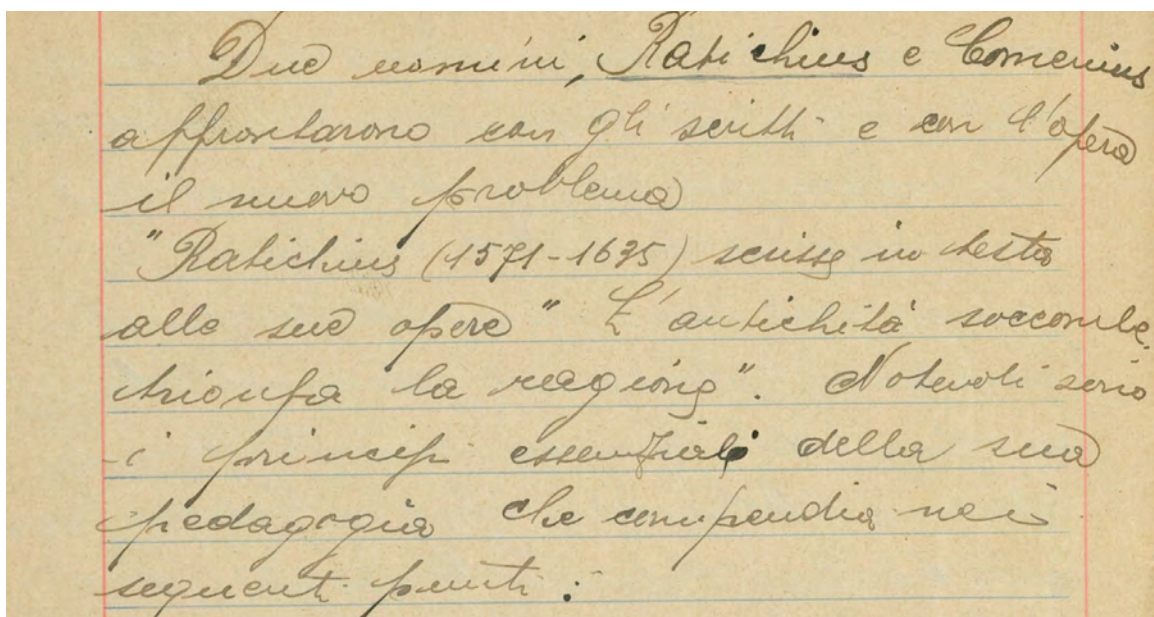 Due uomini, Ratichius e Comenius
affrontarono con gli scritti e con l'opera
il nuovo problema
"Ratichius (1571-1635) scisse in testa
alle sue opere" L'antichità soccombe,
trionfa la ragione". Notevoli sono
i principi essenziali della sua
pedagogia che compendia nei
seguenti punti: